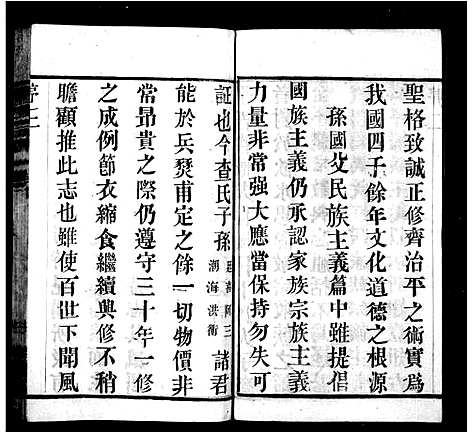 聖格致誠正修齊治平之術實爲
我國四千餘年文化道德之根源
孫國父民族主義篇中雖提倡
國族主義仍承認家族宗族主義
力量非常强大應當保持勿失可
証也今查氏子孫
渤海洪衛
諸君
能於兵燹甫定之餘一切物價非
常昂貴之際仍遵守三十年一修
之成例節衣縮食繼續興修不稍
瞻顧推此志也雖使百世下聞風